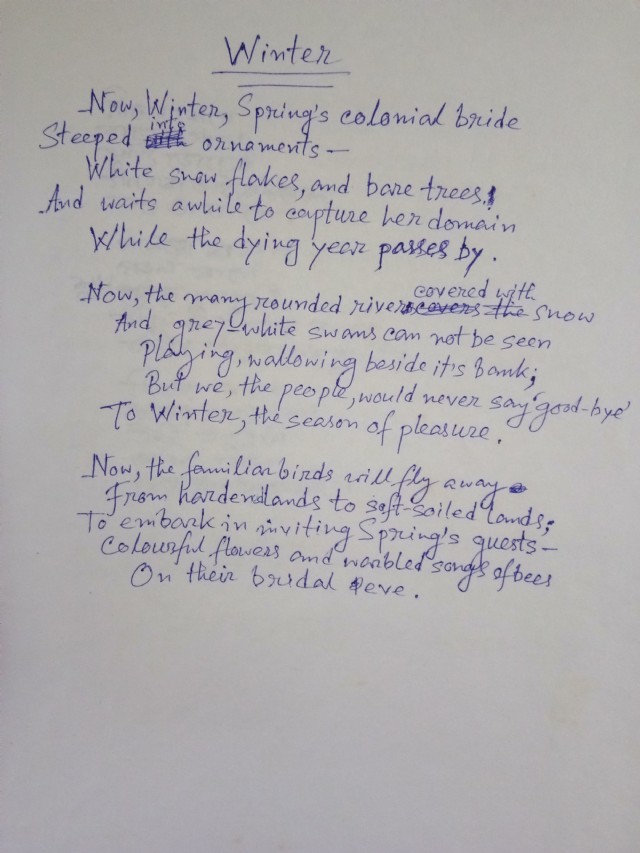 Winter
Now, Winter, Spring's colonial bride
Steeped into ornaments—
White snow flakes, and bare trees;
And waits awhile to capture her domain
While the dying year passes by.
Now, the many rounded rivers covered with snow
And grey-white swans can not be seen
Playing, wallowing beside it's bank;
But we, the people, would never say 'good-bye'
To Winter, the season of pleasure.
Now, the familiar birds will fly away
From hardend lands to soft-soiled lands;
To embark in inviting Spring's guests—
Colourful flowers and warbled songs of bees
On their bridal eve.